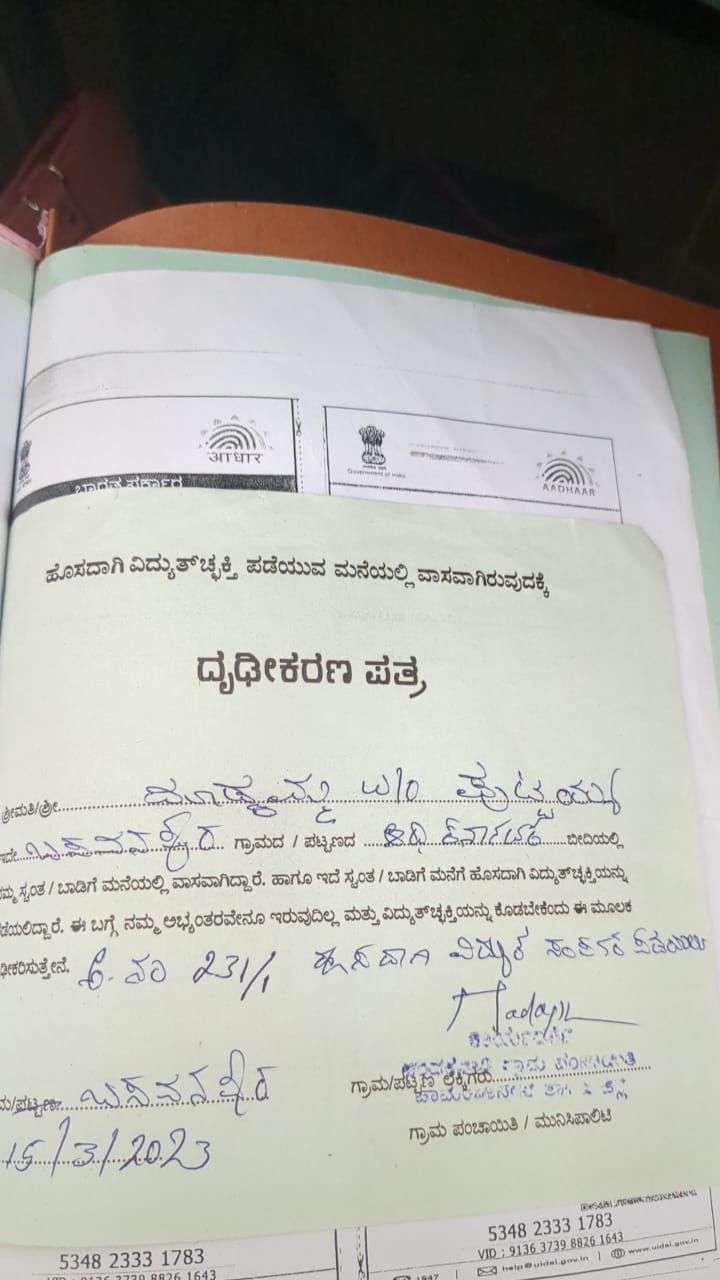 आधार
ಭಾರತ ಸರ್ಕಾರ
Government of India
AADHAAR
ಹೊಸದಾಗಿ ವಿದ್ಯುತ್‌ಚ್ಛಕ್ತಿ ಪಡೆಯುವ ಮನೆಯಲ್ಲಿ ವಾಸವಾಗಿರುವುದಕ್ಕೆ
ದೃಢೀಕರಣ ಪತ್ರ
ಶ್ರೀಮತಿ/ಶ್ರೀ W/o ಪುಟ್ಟಯ್ಯ
ಇದೇ ಗ್ರಾಮದ / ಪಟ್ಟಣದ ಬೀದಿಯಲ್ಲಿ
ಸ್ವಂತ / ಬಾಡಿಗೆ ಮನೆಯಲ್ಲಿ ವಾಸವಾಗಿದ್ದಾರೆ. ಹಾಗೂ ಇದೆ ಸ್ವಂತ / ಬಾಡಿಗೆ ಮನೆಗೆ ಹೊಸದಾಗಿ ವಿದ್ಯುತ್‌ಚ್ಛಕ್ತಿಯನ್ನು
ಈ ಬಗ್ಗೆ ನಮ್ಮ ಅಭ್ಯಂತರವೇನೂ ಇರುವುದಿಲ್ಲ ಮತ್ತು ವಿದ್ಯುತ್‌ಚ್ಛಕ್ತಿಯನ್ನು ಕೊಡಬೇಕೆಂದು ಈ ಮೂಲಕ
ಧೀಕರಿಸುತ್ತೇನೆ. ನಂ 231/1 ಹೊಸದಾಗಿ ವಿದ್ಯುತ್ ಸಂಪರ್ಕ ಪಡೆಯಲು
ಗ್ರಾಮ/ಪಟ್ಟಣ ಲೆಕ್ಕಿಗರು
15/3/2023
ಗ್ರಾಮ ಪಂಚಾಯಿತಿ / ಮುನಿಸಿಪಾಲಿಟಿ
5348 2333 1783
VID : 9136 3739 8826 1643
1947 | help@uidai.gov.in | www.uidai.gov.in
5348 2333 1783
VID : 9136 3739 8826 1643